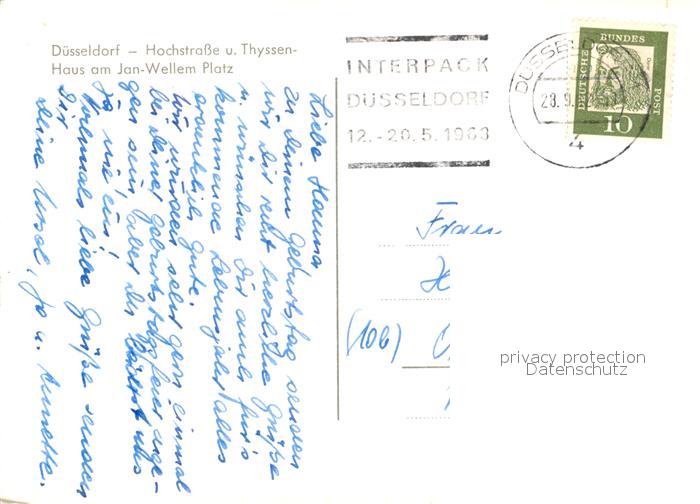 Düsseldorf – Hochstraße u. Thyssen-
Haus am Jan-Wellem Platz
INTERPACK
DÜSSELDORF
12.-20.5.1963
DÜSSELDORF
23.9.
4
DEUTSCHE BUNDES POST
10
Liebe Hanna
zu Deinem Geburtstag senden
wir Dir recht herzliche Grüße
u. wünschen Dir auch für's
kommende Lebensjahr alles
erdenklich gute.
Wir würden sehr gern einmal
bei Deiner Geburtstagsfeier zuge-
gen sein, aber Du
Ja wie
Vielmals liebe Grüße senden
Dir
Deine Ursel, Jo u. Annette.
Frau
(106)
privacy protection
Datenschutz